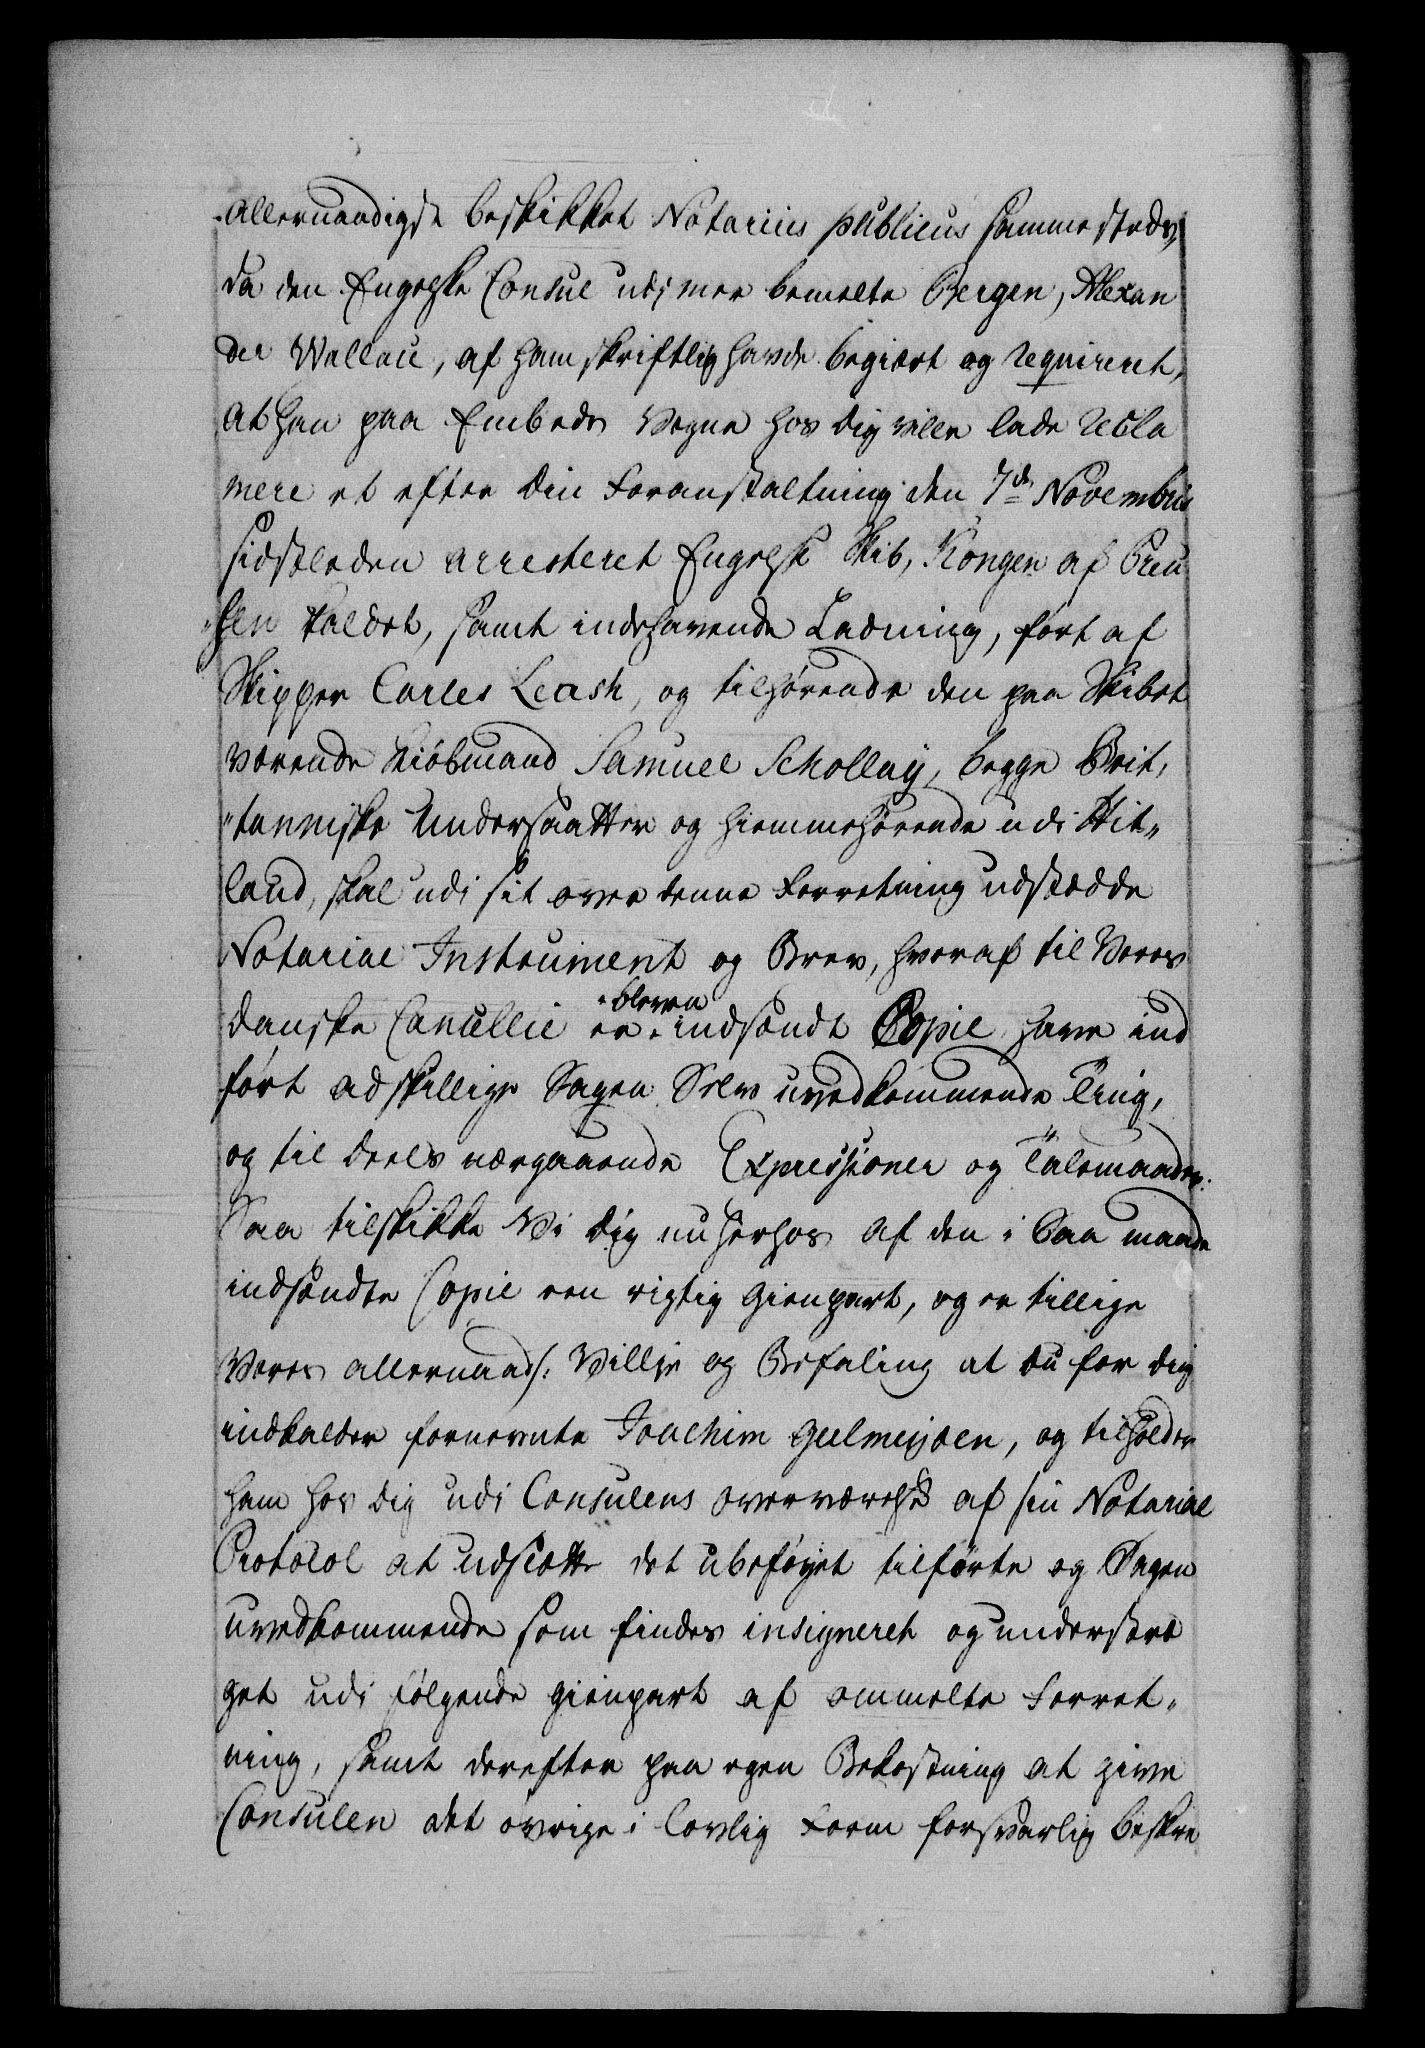 allernaadigst beskikket Notarius publicus sammesteds,
da den Engelske Consul udj meer bemelte Bergen, Alexan
der Wallau, af ham skriftlig havde begiært og requireret,
at han paa Embeds Vegne hos dig ville lade recla
mere et efter din Foranstaltning den 7de Novembris
sidstleden arresteret Engelsk Skib, Kongen af Preu
„sen kaldet, samt indehavende Ladning, ført af
Skipper Carles Leash, og tilhørende den paa Skibet
værende Kiøbmand Samuel Schollay, begge Brit,
„tanniske Undersaatter og hiemmehørende udi Hit„
land, skal udi sit over denne Forretning udstædde
Notarial Instrument og Brev, hvoraf til Vores
danske Cancellie er bleven indsendt Copie have ind
ført adskillige Sagen Selv uvedkommende Ting,
og til deels nærgaaende Expressioner og Talemaader.
Saa tilskikke Vi dig nu herhos af den i saa maade
indsendte Copie een rigtig Gienpart, og er tillige
Vores allernaads: Villie og Befaling at du for dig
indkalder fornevnte Joachim Geelmeyden, og tilholder
ham hos dig udi Consulens overværelse af sin Notarial
Protocol at udslette det ubeføyet tilførte og Sagen
uvedkommende som findes insigneret og understre
get udi følgende Gienpart af ommelte Forret„
ning, samt derefter paa egen Bekostning at give
Consulen det øvrige i lovlig Form forsvarlig beskre